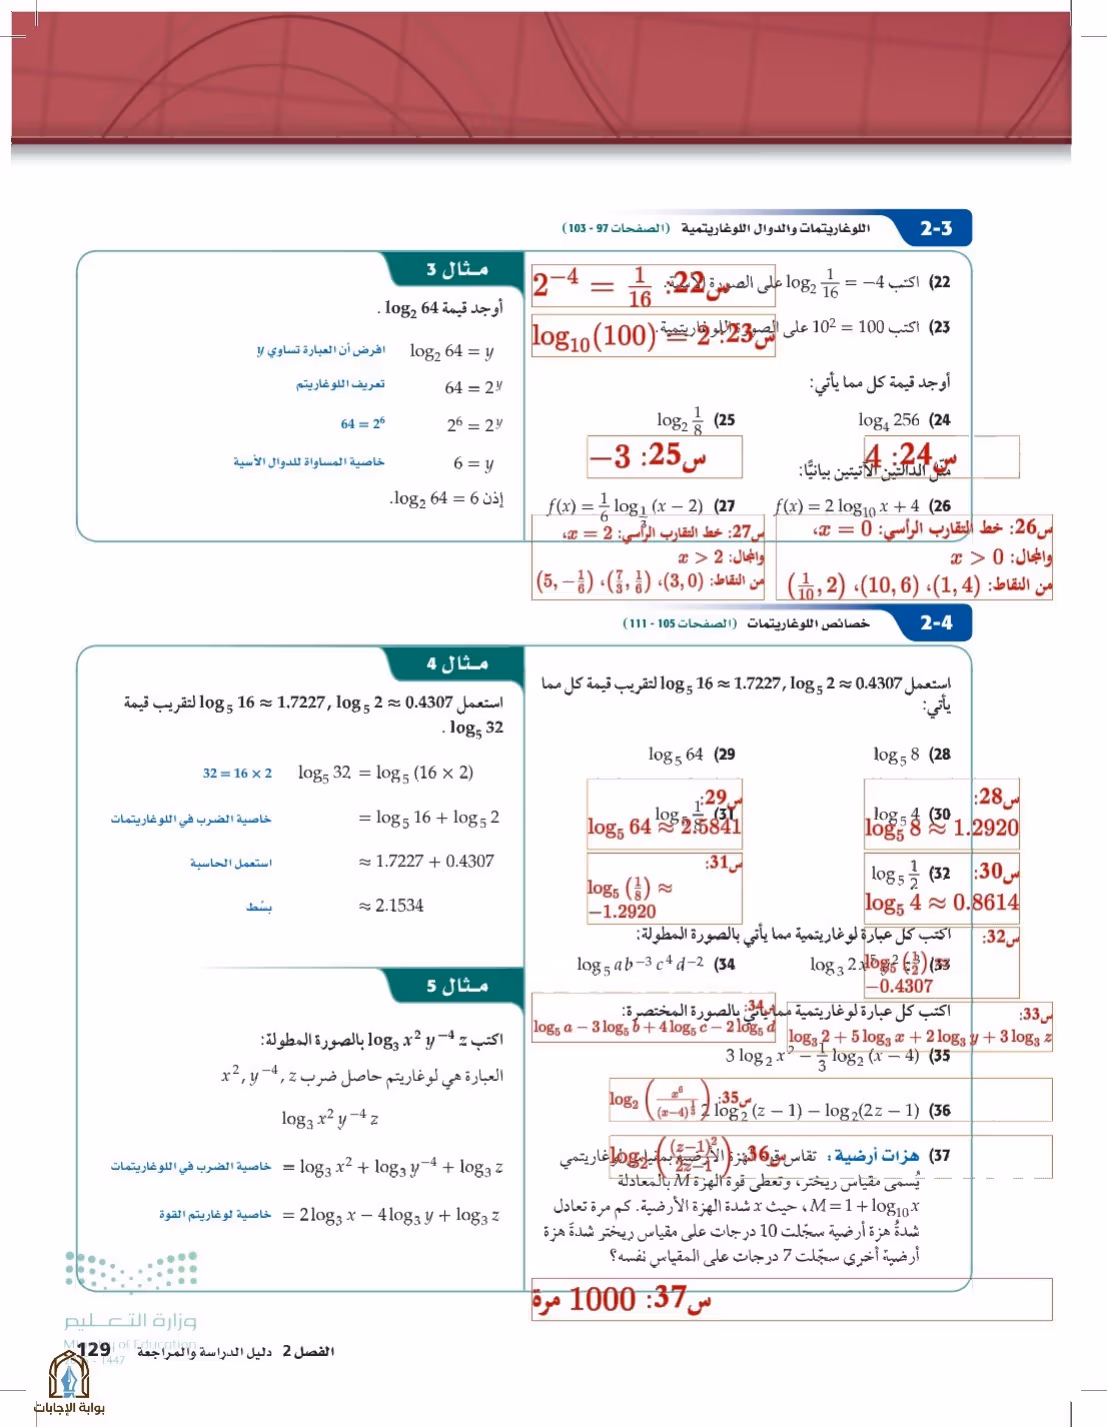 2-3 اللوغاريتمات والدوال اللوغاريتمية (الصفحات 97 - 103)
22) اكتب log₂ 1/16 = −4 على الصورة الأسية.
س22: 2⁻⁴ = 1/16
23) اكتب 10² = 100 على الصورة اللوغاريتمية.
س23: log₁₀(100) = 2
أوجد قيمة كل مما يأتي:
24) log₄ 256
25) log₂ 1/8
س24: 4
س25: −3
مثّل الدالتين الآتيتين بيانيًّا:
26) f(x) = 2 log₁₀ x + 4
27) f(x) = 1/6 log_{1/3} (x − 2)
س26: خط التقارب الرأسي: x = 0،
والمجال: x > 0
من النقاط: (1, 4)، (10, 6)، (1/10, 2)
س27: خط التقارب الرأسي: x = 2،
والمجال: x > 2
من النقاط: (3, 0)، (7/3, 1/6)، (5, −1/6)
مثال 3
أوجد قيمة log₂ 64 .
log₂ 64 = y افرض أن العبارة تساوي y
64 = 2ʸ تعريف اللوغاريتم
2⁶ = 2ʸ 64 = 2⁶
6 = y خاصية المساواة للدوال الأسية
إذن log₂ 64 = 6.
2-4 خصائص اللوغاريتمات (الصفحات 105 - 111)
استعمل log₅ 16 ≈ 1.7227 , log₅ 2 ≈ 0.4307 لتقريب قيمة كل مما
يأتي:
28) log₅ 8
29) log₅ 64
س28:
log₅ 8 ≈ 1.2920
س29:
log₅ 64 ≈ 2.5841
30) log₅ 4
31) log₅ 1/8
س30:
log₅ 4 ≈ 0.8614
س31:
log₅ (1/8) ≈
−1.2920
32) log₅ 1/2
س32:
log₅ (1/2) ≈
−0.4307
اكتب كل عبارة لوغاريتمية مما يأتي بالصورة المطولة:
33) log₃ 2x⁵ y² z³
34) log₅ ab⁻³ c⁴ d⁻²
س33:
log₃ 2 + 5 log₃ x + 2 log₃ y + 3 log₃ z
س34:
log₅ a − 3 log₅ b + 4 log₅ c − 2 log₅ d
اكتب كل عبارة لوغاريتمية مما يأتي بالصورة المختصرة:
35) 3 log₂ x² − 1/3 log₂ (x − 4)
س35: log₂ (x⁶/(x−4)^{1/3})
36) 2 log₂ (z − 1) − log₂(2z − 1)
س36: log₂ ((z−1)²/2z−1)
37) هزات أرضية: تقاس قوة الهزة الأرضية بمقياس لوغاريتمي
يُسمى مقياس ريختر، وتعطى قوة الهزة M بالمعادلة
M = 1 + log₁₀ x، حيث x شدة الهزة الأرضية. كم مرة تعادل
شدةُ هزة أرضية سجّلت 10 درجات على مقياس ريختر شدةَ هزة
أرضية أخرى سجّلت 7 درجات على المقياس نفسه؟
س37: 1000 مرة
مثال 4
استعمل log₅ 16 ≈ 1.7227 , log₅ 2 ≈ 0.4307 لتقريب قيمة
log₅ 32 .
log₅ 32 = log₅ (16 × 2) 32 = 16 × 2
= log₅ 16 + log₅ 2 خاصية الضرب في اللوغاريتمات
≈ 1.7227 + 0.4307 استعمل الحاسبة
≈ 2.1534 بسّط
مثال 5
اكتب log₃ x² y⁻⁴ z بالصورة المطولة:
العبارة هي لوغاريتم حاصل ضرب x², y⁻⁴, z
log₃ x² y⁻⁴ z
= log₃ x² + log₃ y⁻⁴ + log₃ z خاصية الضرب في اللوغاريتمات
= 2 log₃ x − 4 log₃ y + log₃ z خاصية لوغاريتم القوة
وزارة التعليم
Ministry of Education
1447
الفصل 2 دليل الدراسة والمراجعة 129
بوابة الإجابات